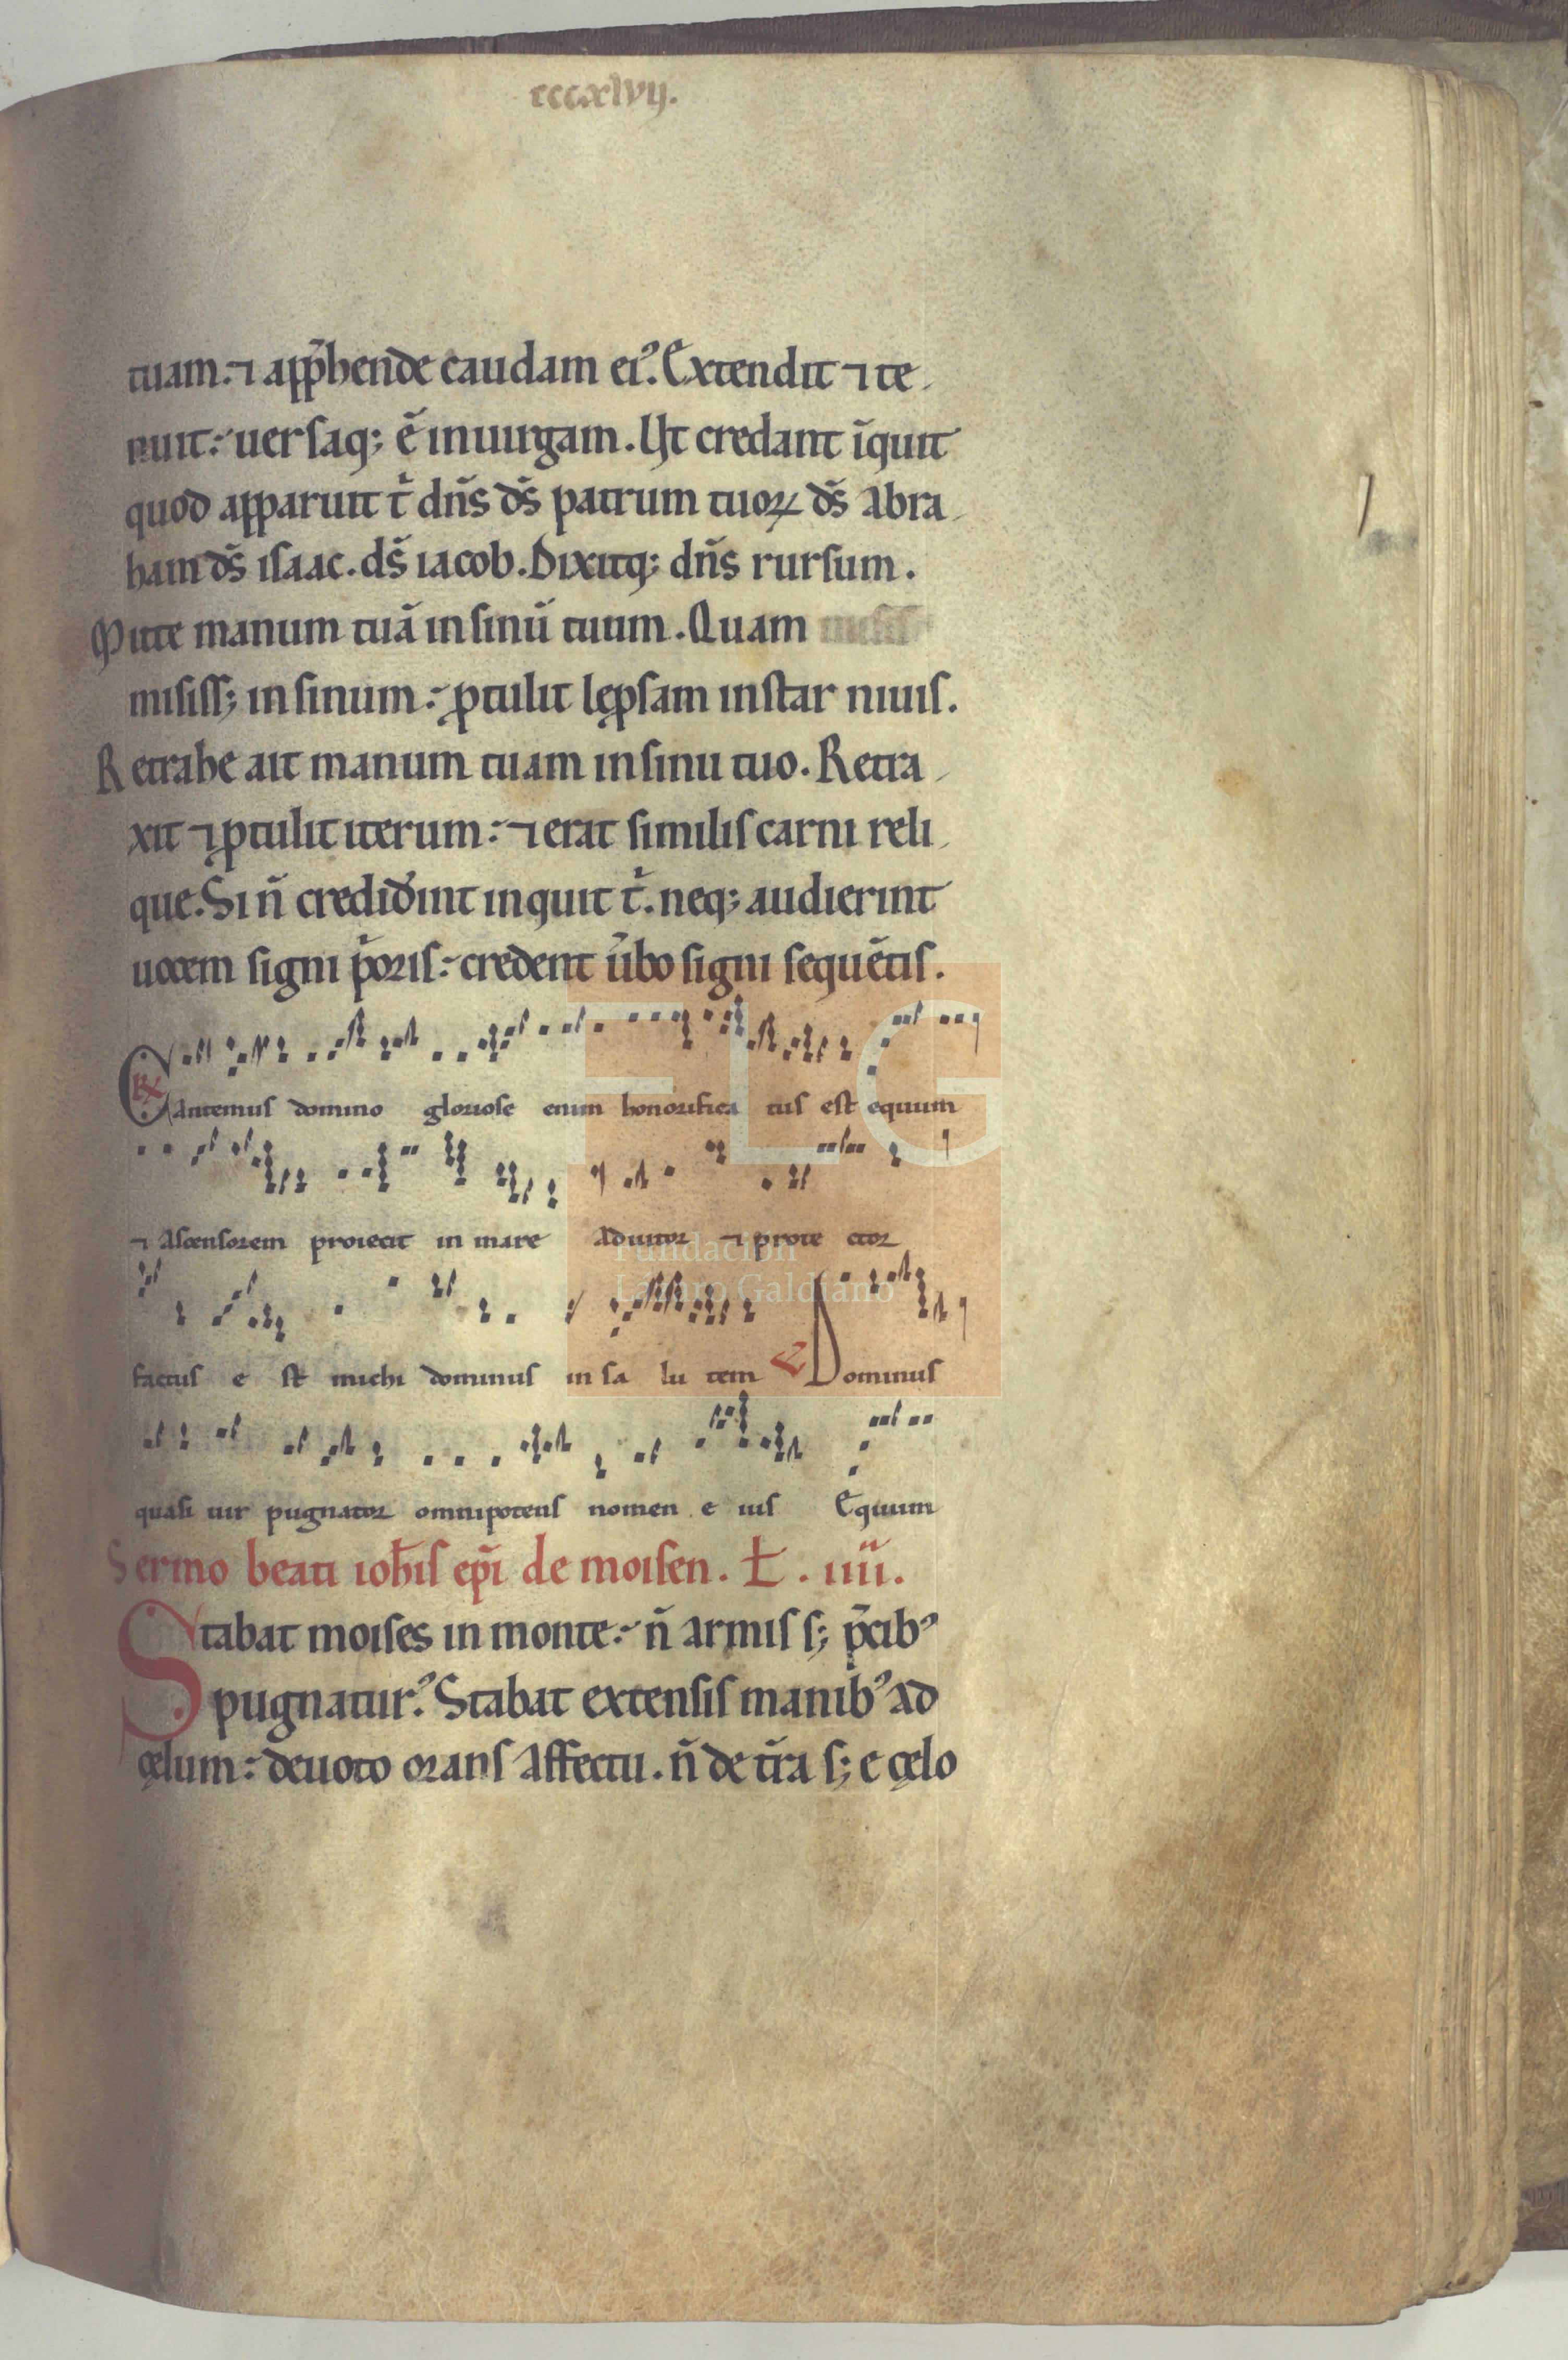 cccxlvij.
tuam. ⁊ app̄hende caudam eiꝰ. Extendit ⁊ te
nuit: uersaq; ē in uirgam. Ut credant īquit
quod apparuit t̄ dn̄s ds̄ patrum tuoꝝ ds̄ abra
ham ds̄ isaac. ds̄ iacob. Dixitq; dn̄s rursum.
Mitte manum tuā in sinū tuum. Quam
misiss; in sinum: ꝓtulit lep̱sam instar niuis.
Retrahe ait manum tuam in sinu tuo. Retra
xit ⁊ ꝓtulit iterum: ⁊ erat similis carni reli
que. Si n̄ credid̄int inquit t̄. neq; audierint
uocem signi p̄oris: credent ūbo signi sequētis.
R/ Cantemus domino gloriose enim honorifica tus est equum
⁊ ascensorem proiecit in mare adiutor ⁊ prote ctor
factus e st michi dominus in sa lu tem V/ Dominus
quasi uir pugnator omnipotens nomen e ius Equum
Sermo beati ioh̄is ep̄i de moisen. Ł. iiii.
Stabat moises in monte: n̄ armis s; p̄cibꝰ
pugnaturꝰ. Stabat extensis manibꝰ ad
cęlum: deuoto orans affectu. n̄ de t̄ra s; e cęlo
Fundación
Lázaro Galdiano
FLG